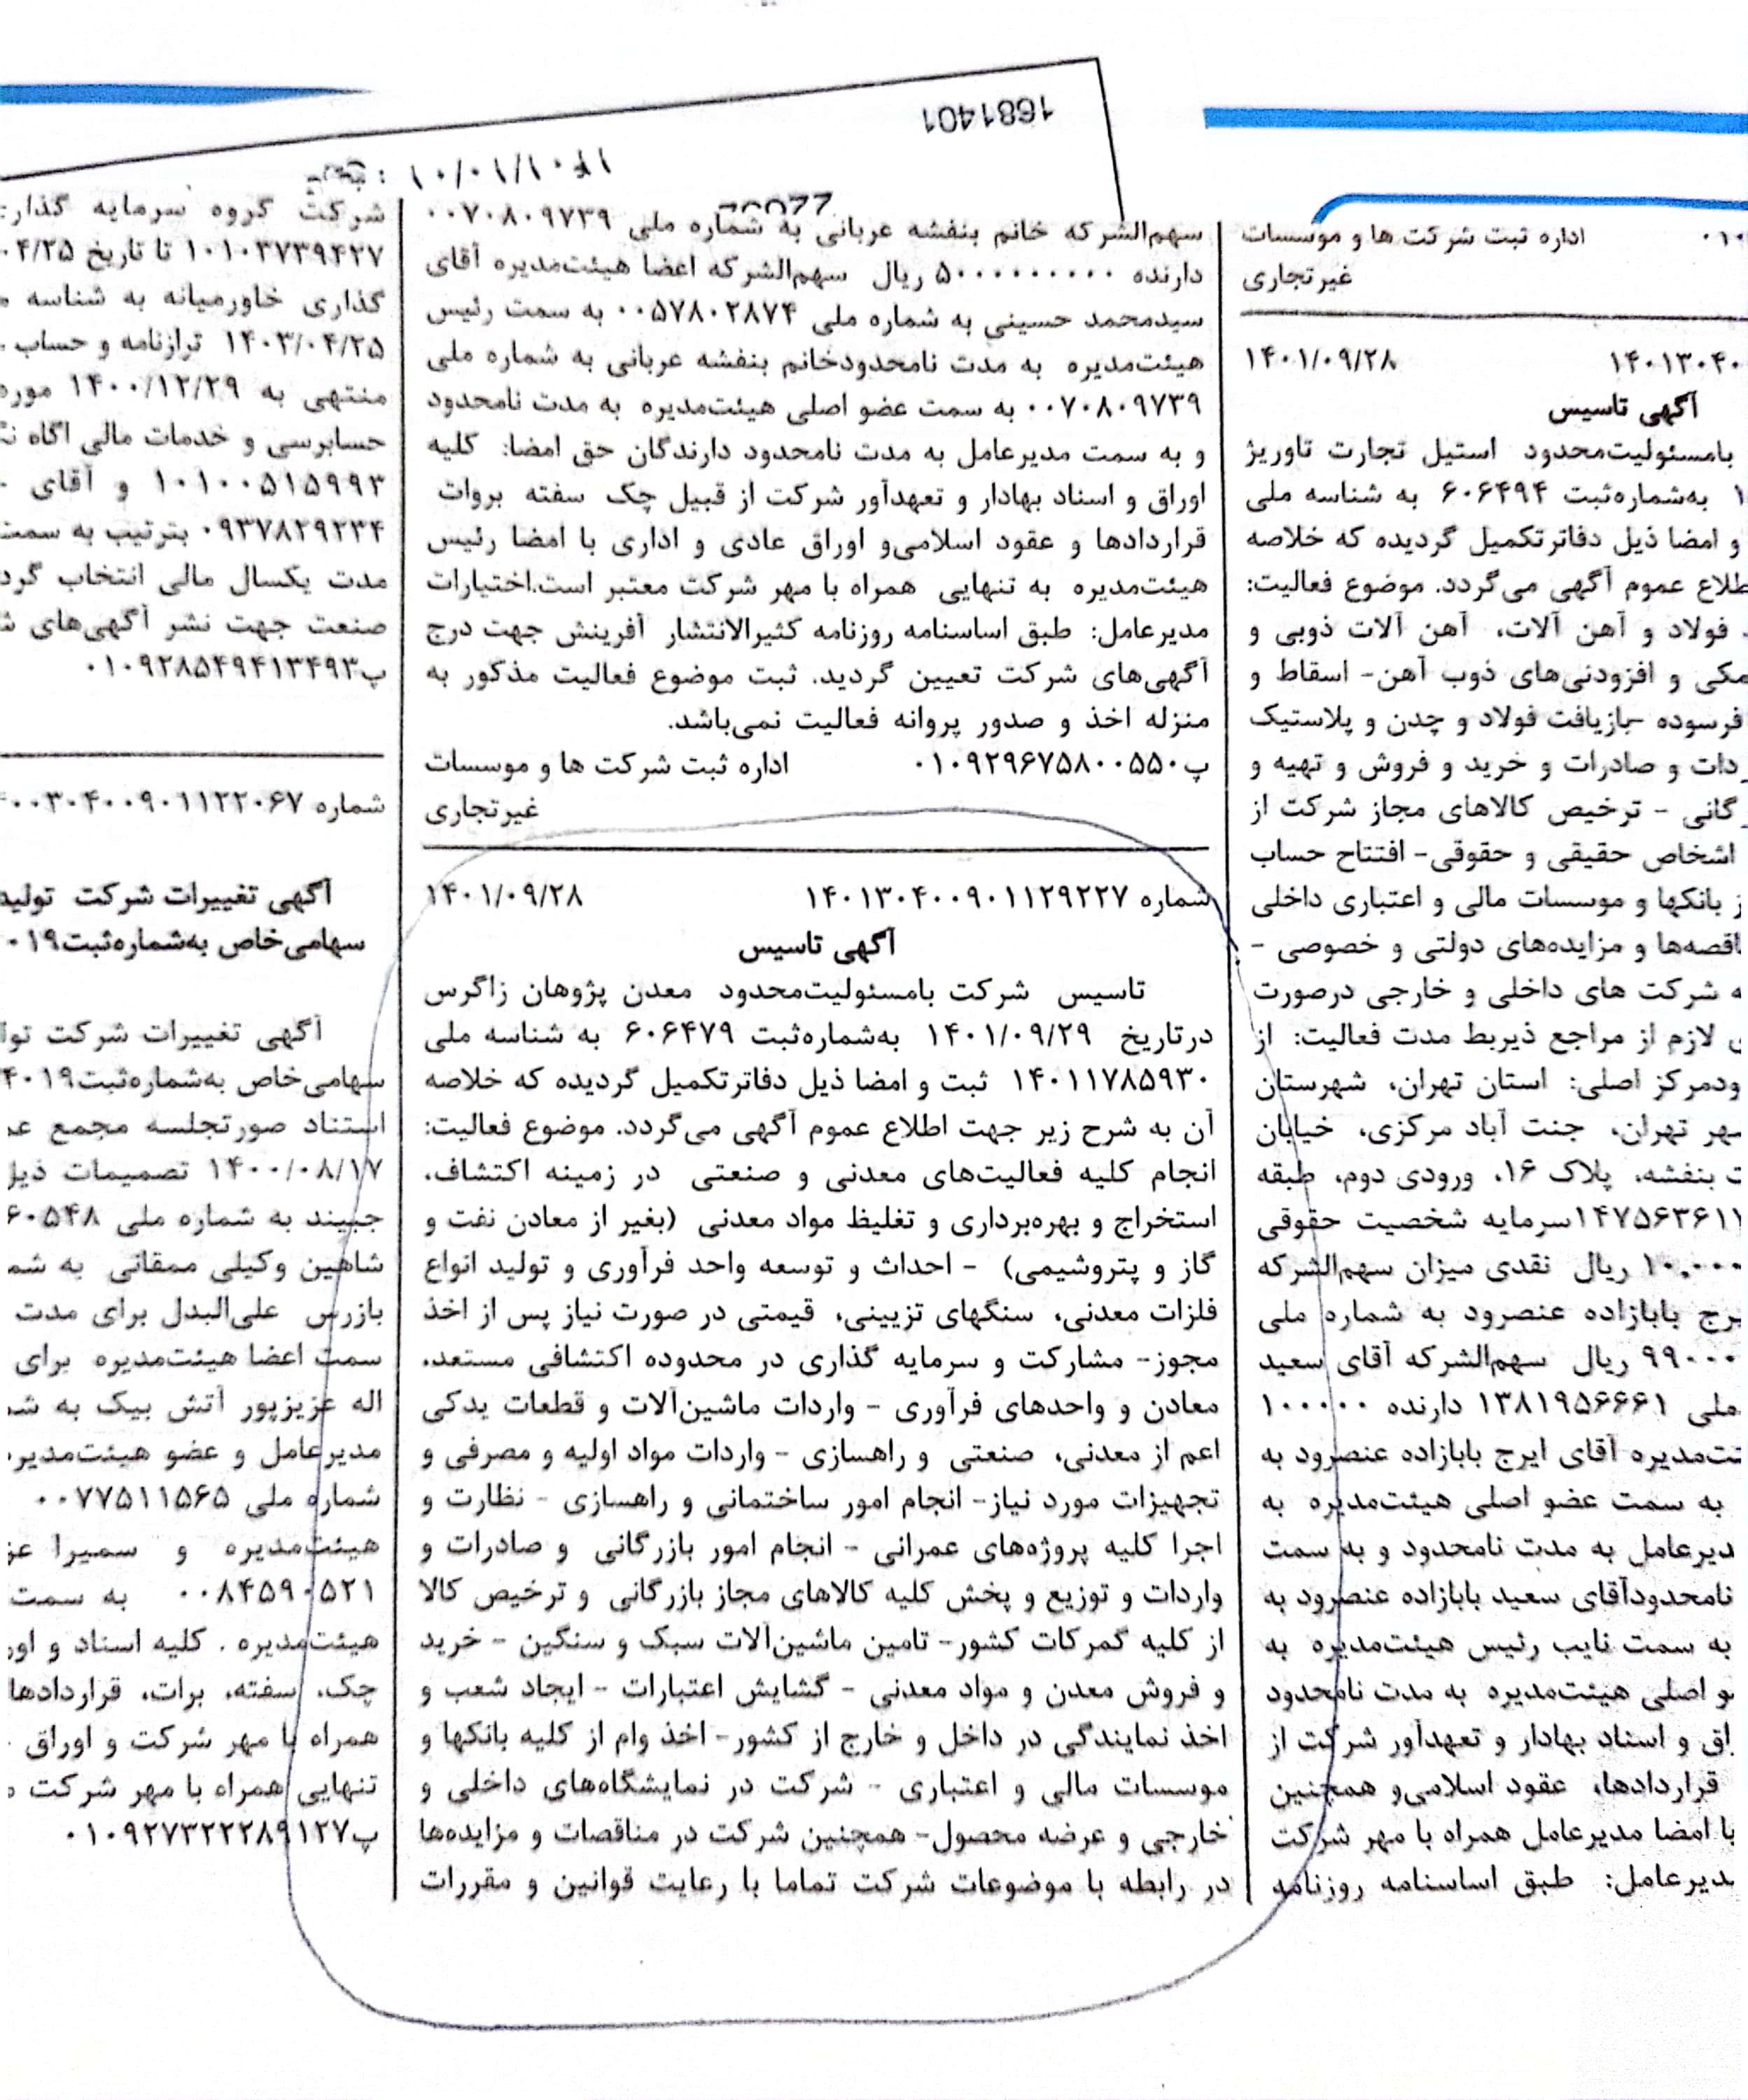 1681401
اداره ثبت شرکت ها و موسسات
غیرتجاری
۱۴۰۱/۰۹/۲۸
۱۴۰۱۳۰۴۰۰
آگهی تاسیس
بامسئولیت‌محدود استیل تجارت تاوریژ
به‌شماره‌ثبت ۶۰۶۴۹۴ به شناسه ملی
و امضا ذیل دفاترتکمیل گردیده که خلاصه
عموم آگهی می‌گردد. موضوع فعالیت:
فولاد و آهن آلات، آهن آلات ذوبی و
و افزودنی‌های ذوب آهن- اسقاط و
فرسوده -بازیافت فولاد و چدن و پلاستیک
و صادرات و خرید و فروش و تهیه و
- ترخیص کالاهای مجاز شرکت از
اشخاص حقیقی و حقوقی- افتتاح حساب
بانکها و موسسات مالی و اعتباری داخلی
و مزایده‌های دولتی و خصوصی -
شرکت های داخلی و خارجی درصورت
لازم از مراجع ذیربط مدت فعالیت: از
اصلی: استان تهران، شهرستان
تهران، جنت آباد مرکزی، خیابان
بنفشه، پلاک ۱۶، ورودی دوم، طبقه
سرمایه شخصیت حقوقی
ریال نقدی میزان سهم‌الشرکه
بابازاده عنصرود به شماره ملی
ریال سهم‌الشرکه آقای سعید
ملی ۱۳۸۱۹۵۶۶۶۱ دارنده ۱۰۰۰۰۰
آقای ایرج بابازاده عنصرود به
به سمت عضو اصلی هیئت‌مدیره به
به مدت نامحدود و به سمت
نامحدودآقای سعید بابازاده عنصرود به
به سمت نایب رئیس هیئت‌مدیره به
اصلی هیئت‌مدیره به مدت نامحدود
و اسناد بهادار و تعهدآور شرکت از
قراردادها، عقود اسلامی‌و همچنین
با امضا مدیرعامل همراه با مهر شرکت
طبق اساسنامه روزنامه
سهم‌الشرکه خانم بنفشه عربانی به شماره ملی ۰۰۷۰۸۰۹۷۳۹
دارنده ۵۰۰۰۰۰۰۰۰۰ ریال سهم‌الشرکه اعضا هیئت‌مدیره آقای
سیدمحمد حسینی به شماره ملی ۰۰۵۷۸۰۲۸۷۴ به سمت رئیس
هیئت‌مدیره به مدت نامحدودخانم بنفشه عربانی به شماره ملی
۰۰۷۰۸۰۹۷۳۹ به سمت عضو اصلی هیئت‌مدیره به مدت نامحدود
و به سمت مدیرعامل به مدت نامحدود دارندگان حق امضا: کلیه
اوراق و اسناد بهادار و تعهدآور شرکت از قبیل چک سفته بروات
قراردادها و عقود اسلامی‌و اوراق عادی و اداری با امضا رئیس
هیئت‌مدیره به تنهایی همراه با مهر شرکت معتبر است.اختیارات
مدیرعامل: طبق اساسنامه روزنامه کثیرالانتشار آفرینش جهت درج
آگهی‌های شرکت تعیین گردید. ثبت موضوع فعالیت مذکور به
منزله اخذ و صدور پروانه فعالیت نمی‌باشد.
پ۰۱۰۹۲۹۶۷۵۸۰۰۵۵۰ اداره ثبت شرکت ها و موسسات
غیرتجاری
شماره ۱۴۰۱۳۰۴۰۰۹۰۱۱۲۹۲۲۷ ۱۴۰۱/۰۹/۲۸
آگهی تاسیس
تاسیس شرکت بامسئولیت‌محدود معدن پژوهان زاگرس
درتاریخ ۱۴۰۱/۰۹/۲۹ به‌شماره‌ثبت ۶۰۶۴۷۹ به شناسه ملی
۱۴۰۱۱۷۸۵۹۳۰ ثبت و امضا ذیل دفاترتکمیل گردیده که خلاصه
آن به شرح زیر جهت اطلاع عموم آگهی می‌گردد. موضوع فعالیت:
انجام کلیه فعالیت‌های معدنی و صنعتی در زمینه اکتشاف،
استخراج و بهره‌برداری و تغلیظ مواد معدنی (بغیر از معادن نفت و
گاز و پتروشیمی) - احداث و توسعه واحد فرآوری و تولید انواع
فلزات معدنی، سنگهای تزیینی، قیمتی در صورت نیاز پس از اخذ
مجوز- مشارکت و سرمایه گذاری در محدوده اکتشافی مستعد،
معادن و واحدهای فرآوری - واردات ماشین‌آلات و قطعات یدکی
اعم از معدنی، صنعتی و راهسازی - واردات مواد اولیه و مصرفی و
تجهیزات مورد نیاز- انجام امور ساختمانی و راهسازی - نظارت و
اجرا کلیه پروژه‌های عمرانی - انجام امور بازرگانی و صادرات و
واردات و توزیع و پخش کلیه کالاهای مجاز بازرگانی و ترخیص کالا
از کلیه گمرکات کشور- تامین ماشین‌آلات سبک و سنگین - خرید
و فروش معدن و مواد معدنی - گشایش اعتبارات - ایجاد شعب و
اخذ نمایندگی در داخل و خارج از کشور- اخذ وام از کلیه بانکها و
موسسات مالی و اعتباری - شرکت در نمایشگاه‌های داخلی و
خارجی و عرضه محصول- همچنین شرکت در مناقصات و مزایده‌ها
در رابطه با موضوعات شرکت تماما با رعایت قوانین و مقررات
شرکت گروه سرمایه
۱۰۱۰۳۷۳۹۴۲۷ تا تاریخ
گذاری خاورمیانه به شناسه
۱۴۰۳/۰۴/۲۵ ترازنامه و حساب
منتهی به ۱۴۰۰/۱۲/۲۹
حسابرسی و خدمات مالی آگاه
۱۰۱۰۰۵۱۵۹۹۳ و آقای
۰۹۳۷۸۲۹۲۳۴ بترتیب به سمت
مدت یکسال مالی انتخاب
صنعت جهت نشر آگهی‌های
پ۰۱۰۹۲۸۵۴۹۴۱۳۴۹۳
شماره
آگهی تغییرات شرکت
سهامی‌خاص به‌شماره‌ثبت
آگهی تغییرات شرکت
سهامی‌خاص به‌شماره‌ثبت
استناد صورتجلسه مجمع
۱۴۰۰/۰۸/۱۷ تصمیمات
جبیند به شماره ملی
شاهین وکیلی ممقانی به
بازرس علی‌البدل برای مدت
سمت اعضا هیئت‌مدیره برای
اله عزیزپور آتش بیک به
مدیرعامل و عضو
شماره ملی ۰۰۷۷۵۱۱۵۶۵
هیئت‌مدیره و سمیرا
۰۰۸۴۵۹۰۵۲۱ به سمت
هیئت‌مدیره . کلیه اسناد و
چک، سفته، برات، قراردادها
همراه با مهر شرکت و اوراق
تنهایی همراه با مهر شرکت
پ۰۱۰۹۲۷۳۲۲۲۸۹۱۲۷